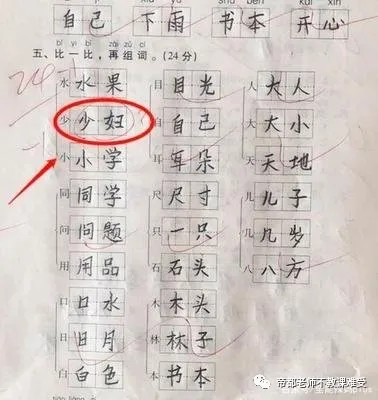 自己 下雨 书本 开心
bǐ yì bǐ zài zǔ cí
五、比一比,再组词。(24分)
24
水 水果 目 目光 人 大人
少 少妇 自 自己 大 大小
小 小学 耳 耳朵 天 天地
同 同学 尺 尺寸 儿 儿子
问 问题 只 一只 几 几岁
用 用品 石 石头 八 八方
口 口水 木 木头
日 日月 林 林子
白 白色 本 书本
帝都老师不教课难受